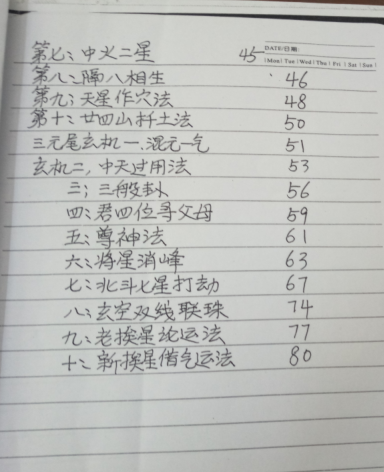 DATE/日期:
Mon Tue Wed Thu Fri Sat Sun
第七:中火二星 45
第八:隔八相生 46
第九:天星作穴法 48
第十:廿四山扦土法 50
三元尾玄机一.混元一气 51
玄机二,中天过用法 53
三;三般卦 56
四:君四位寻父母 59
五:尊神法 61
六:将星消峰 63
七:北斗七星打劫 67
八:玄空双线联珠 74
九:老挨星论运法 77
十:新挨星借气运法 80